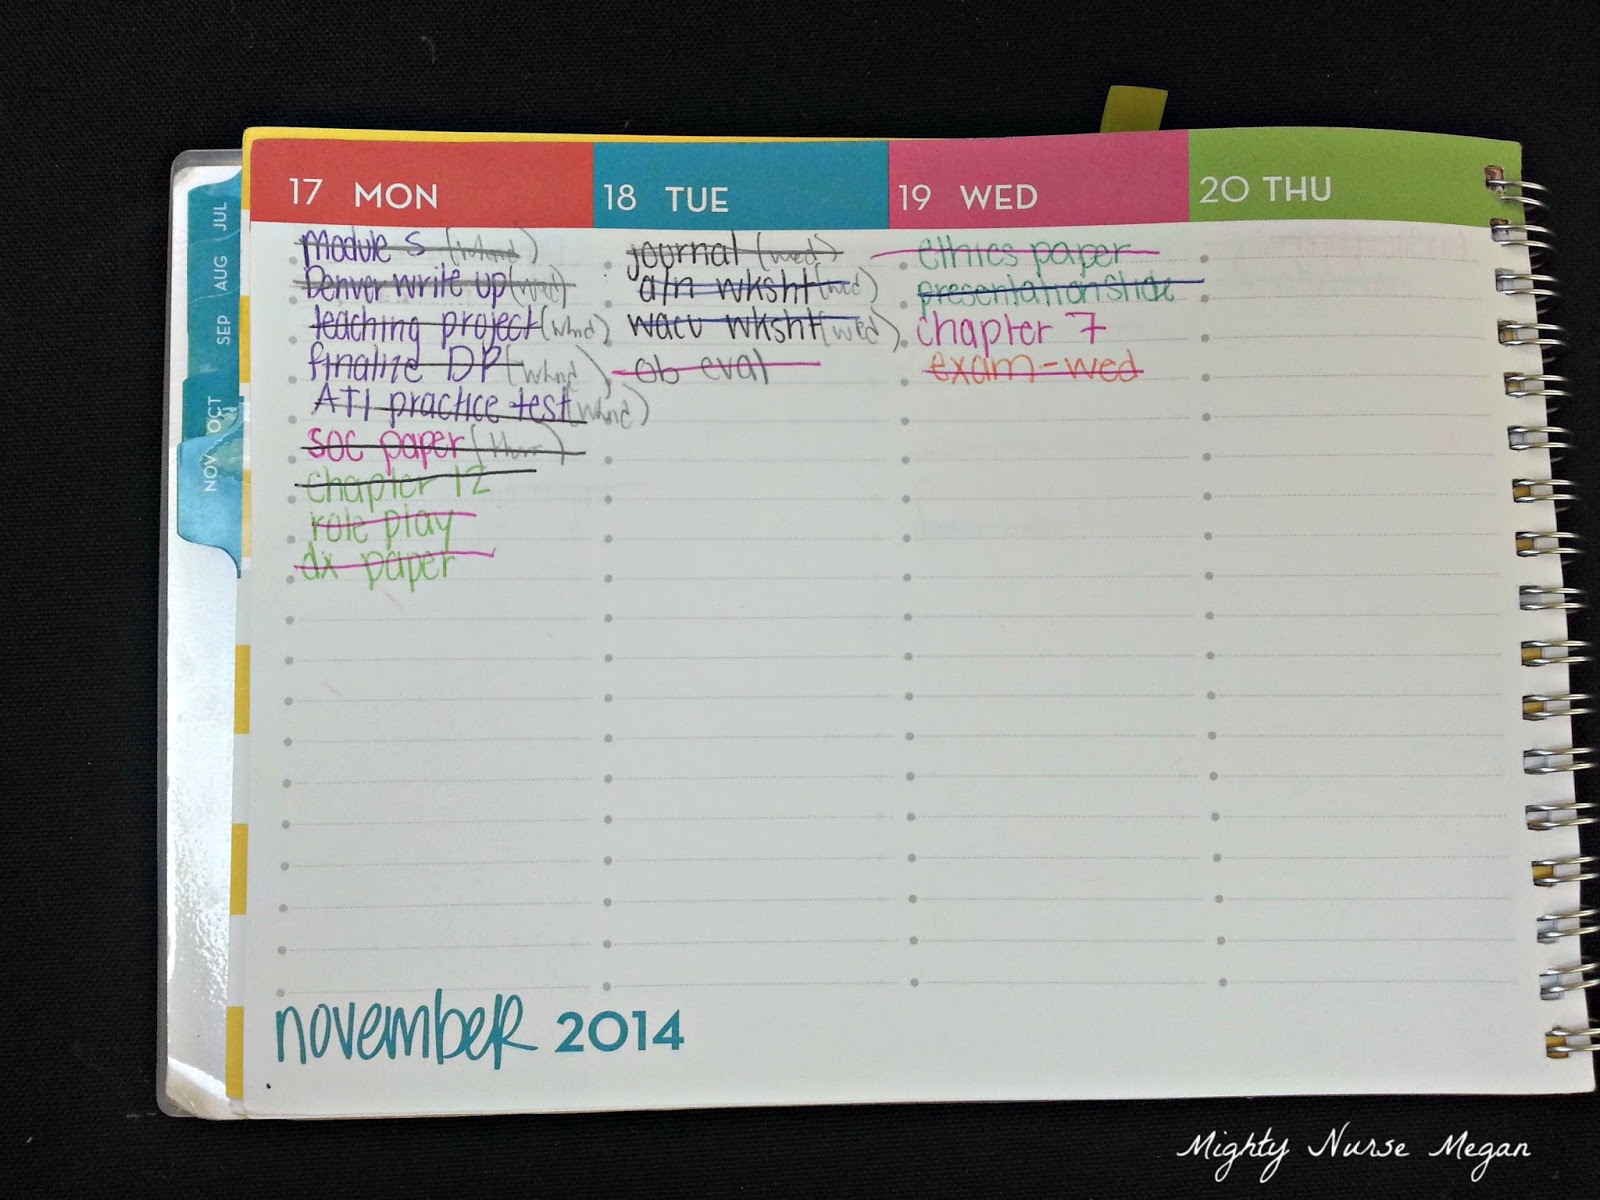 17 MON
18 TUE
19 WED
20 THU
JUL
AUG
SEP
OCT
NOV
module 5
Denver write up (wed)
teaching project (whnd)
finalize DP (whnd)
ATI practice test (whnd)
soc paper
chapter 12
role play
dx paper
journal (wed)
a/n wksht (wed)
wacv wksht (wed)
ob eval
ethics paper
presentation slide
chapter 7
exam - wed
november 2014
Mighty Nurse Megan